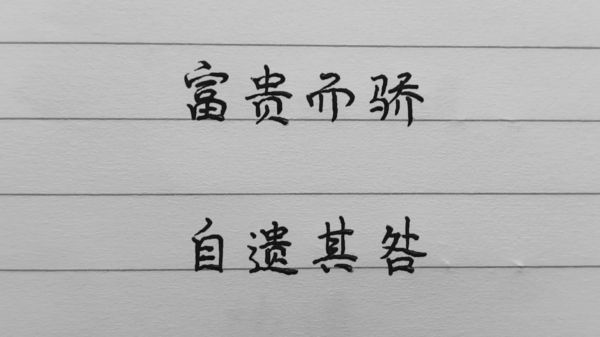 富贵而骄
自遗其咎